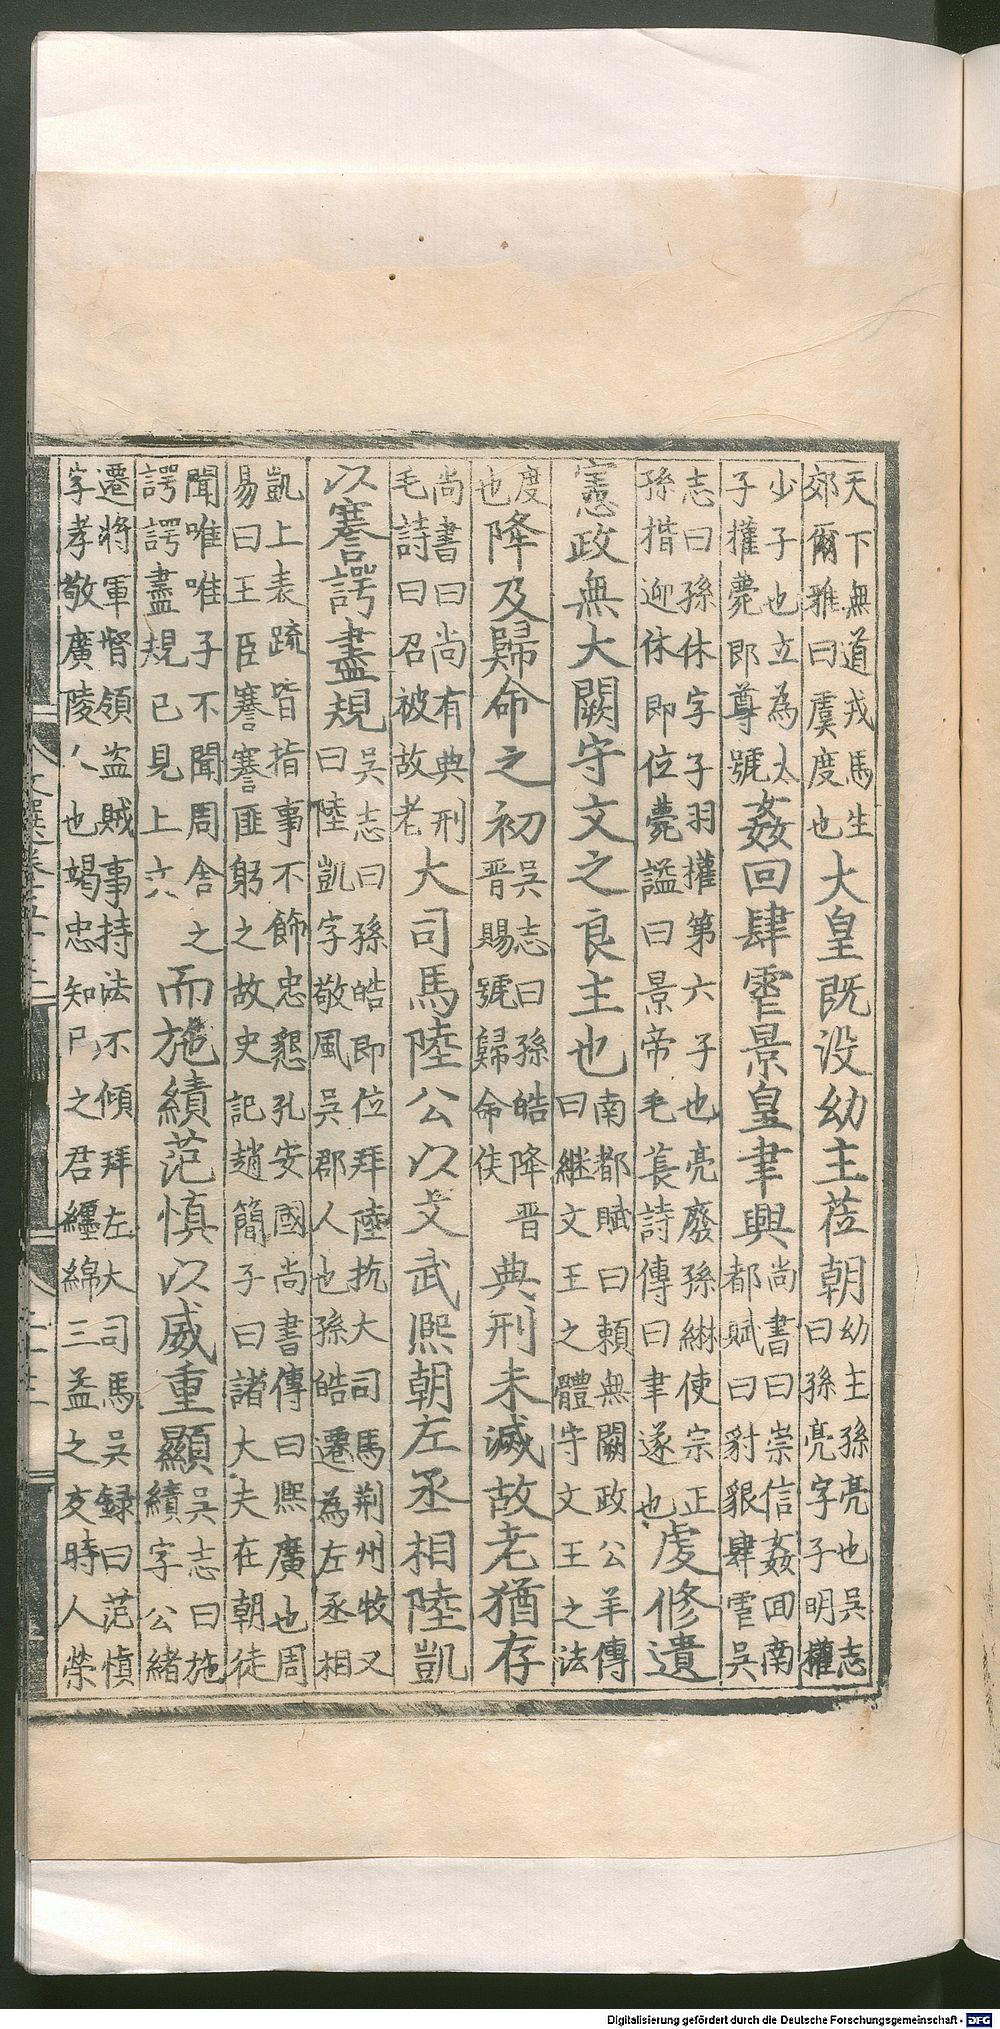 天下無道戎馬生
郊爾雅曰虞度也
大皇既没幼主莅朝
幼主孫亮也吳志
曰孫亮字子明權
少子也立為太
子權薨即尊號
姦回肆虐景皇聿興
尚書曰崇信姦回南
都賦曰豺貇肆虐吳
志曰孫休字子羽權第六子也亮廢孫綝使宗正
孫揩迎休即位薨謚曰景帝毛萇詩傳曰聿遂也
虔修遺
憲政無大闕守文之良主也
南都賦曰賴無闕政公羊傳
曰継文王之體守文王之法
度
也
降及歸命之初
吳志曰孫皓降晋
晋賜號歸命侯
典刑未滅故老猶存
尚書曰尚有典刑
毛詩曰召被故老
大司馬陸公以文武熈朝左丞相陸凱
以謇諤盡規
吳志曰孫皓即位拜陸抗大司馬荆州牧又
曰陸凱字敬風吳郡人也孫皓遷為左丞相
凱上表疏皆指事不飾忠懇孔安國尚書傳曰熈廣也周
易曰王臣謇謇匪躬之故史記趙簡子曰諸大夫在朝徒
聞唯唯子不聞周舎之
諤諤盡規已見上六
而施績范慎以威重顯
吳志曰施
績字公緒
遷將軍督領盗賊事持法不傾拜左大司馬吳録曰范慎
字孝敬廣陵人也竭忠知已之君纒綿三益之友時人榮
Digitalisierung gefördert durch die Deutsche Forschungsgemeinschaft - DFG